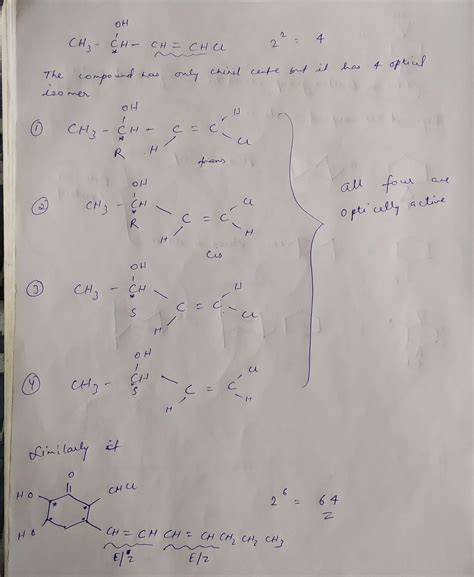 OH
CH3 - CH - CH = CHCl 2² = 4
*
The compound has only chiral centre but it has 4 optical
isomer
① OH H
CH3 - CH - C = C
* H Cl
R trans
② OH Cl
CH3 - CH C = C
* H H
R
Cis
③ OH H
CH3 - CH C = C
* H Cl
S
④ OH Cl
CH3 - CH C = C
* H H
S
all four are
optically active
Similarly if
O
HO CHCl
H
CH = CH CH = CH CH2 CH2 CH3
E/Z E/Z
2⁶ = 64